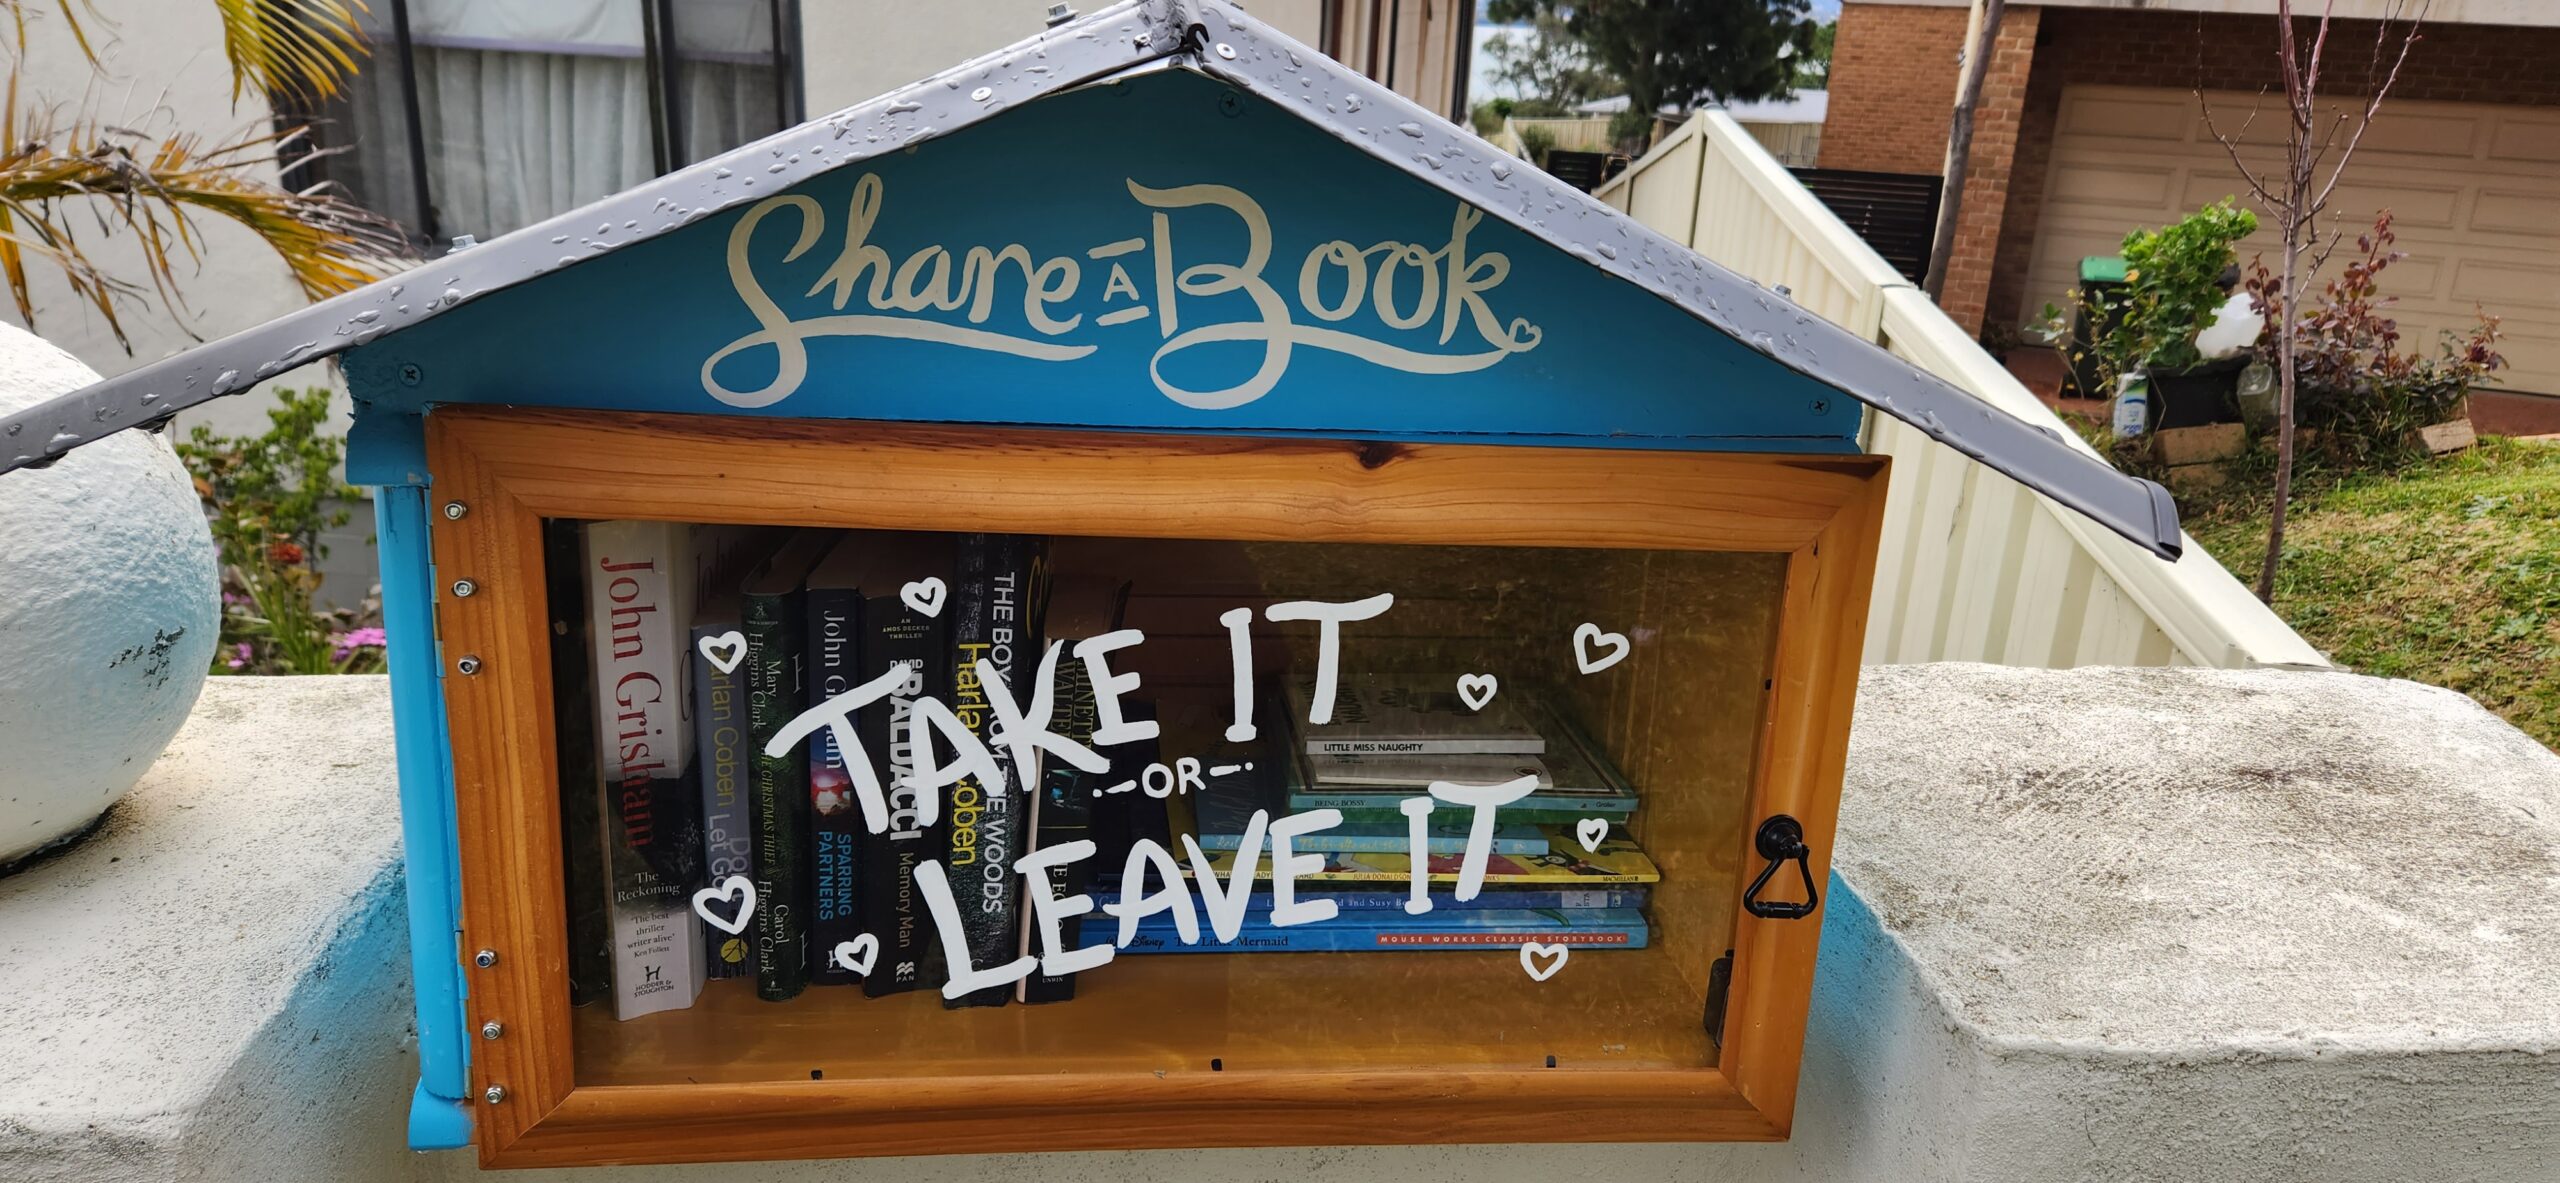 Share A Book
TAKE IT
-OR-
LEAVE IT
John Grisham
The
Reckoning
'The best
thriller
writer alive'
Ken Follett
H
HODDER &
STOUGHTON
Harlan Coben Let
Mary
Higgins Clark
THE CHRISTMAS THIEF
Carol
Higgins Clark
John Grisham
SPARRING
PARTNERS
AN
AMOS DECKER
THRILLER
DAVID
BALDACCI
Memory Man
PAN
THE BOY FROM THE WOODS
Harlan Coben
UNWIN
LITTLE MISS NAUGHTY
BEING BOSSY
Grolier
JULIA DONALDSON
MACMILLAN
and Susy
Disney The Little Mermaid
MOUSE WORKS CLASSIC STORYBOOK